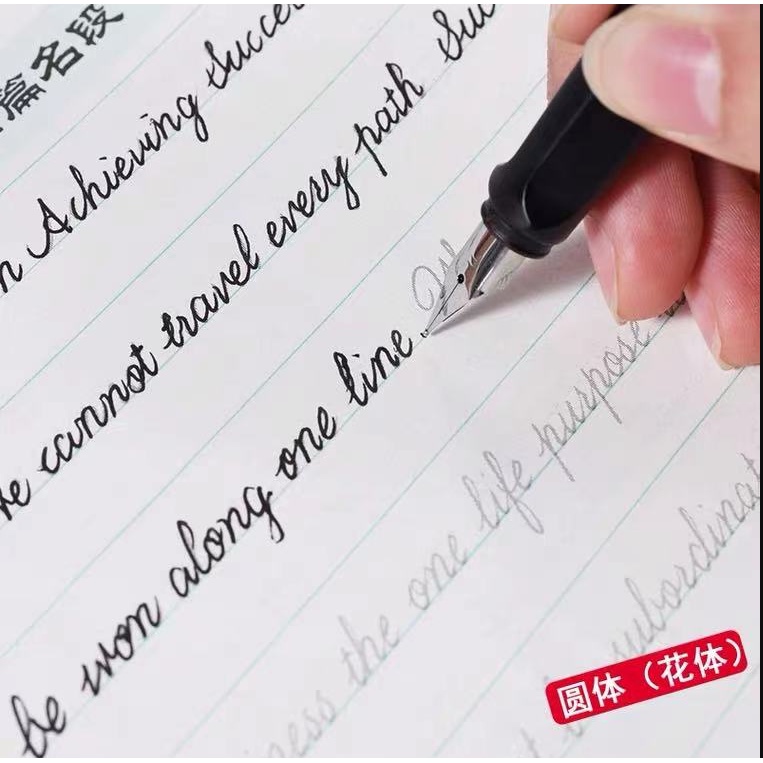 篇名段
n Achieving Succe
te cannot travel every path Suc
be won along one line.
ness the one life purpose
subordinat
圆体（花体）